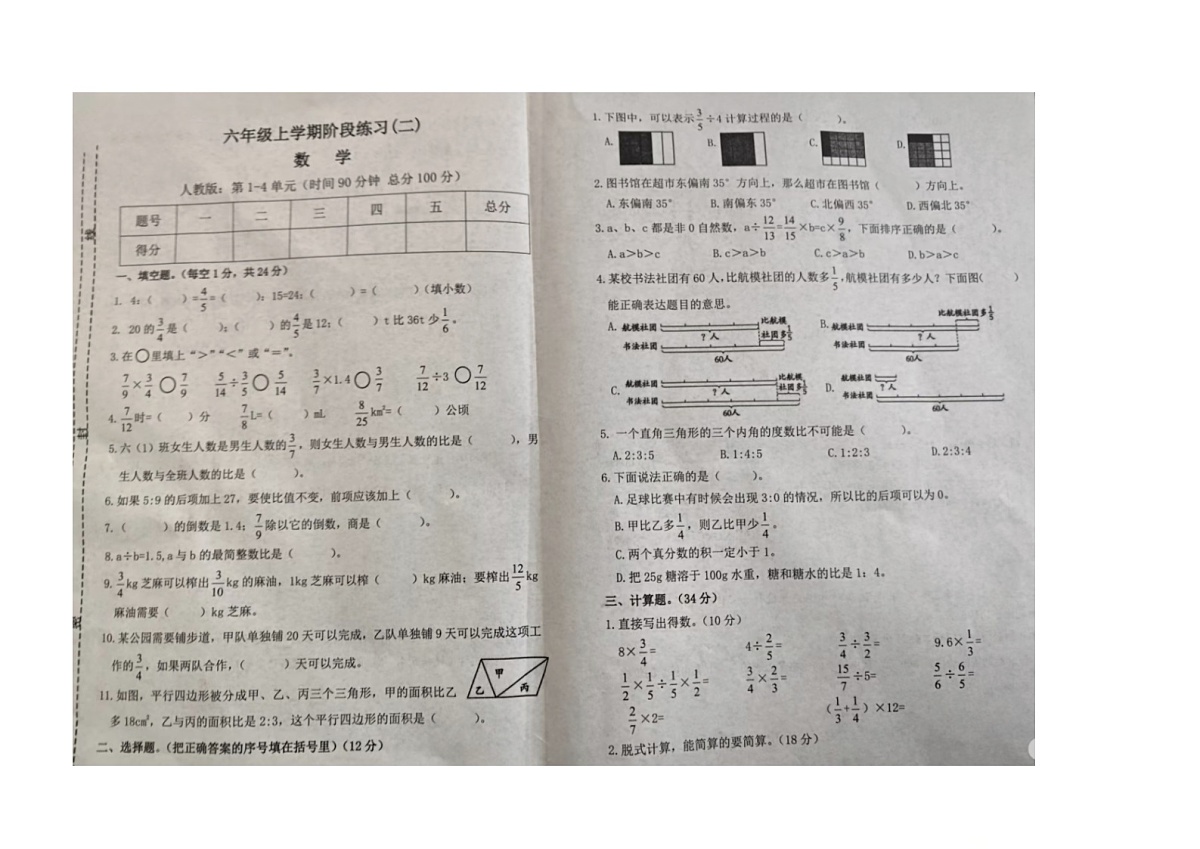 六年级上学期阶段练习(二)
数 学
人教版：第1-4单元（时间90分钟 总分100分）
题号 一 二 三 四 五 总分
得分
一、填空题。（每空1分，共24分）
1. 4:（ ）=4/5=（ ）：15=24:（ ）=（ ）（填小数）
2. 20的3/4是（ ）；（ ）的4/5是12；（ ）t比36t少1/6。
3.在○里填上“>”“<”或“=”。
7/9×3/4○7/9 5/14÷3/5○5/14 3/7×1.4○3/7 7/12÷3○7/12
4.7/12时=（ ）分 7/8L=（ ）mL 8/25km²=（ ）公顷
5.六（1）班女生人数是男生人数的3/7，则女生人数与男生人数的比是（ ），男
生人数与全班人数的比是（ ）。
6.如果5:9的后项加上27，要使比值不变，前项应该加上（ ）。
7.（ ）的倒数是1.4；7/9除以它的倒数，商是（ ）。
8.a÷b=1.5,a与b的最简整数比是（ ）。
9.3/4kg芝麻可以榨出3/10kg的麻油，1kg芝麻可以榨（ ）kg麻油；要榨出12/5kg
麻油需要（ ）kg芝麻。
10.某公园需要铺步道，甲队单独铺20天可以完成，乙队单独铺9天可以完成这项工
作的3/4，如果两队合作，（ ）天可以完成。
11.如图，平行四边形被分成甲、乙、丙三个三角形，甲的面积比乙
甲 乙 丙
多18cm²，乙与丙的面积比是2:3，这个平行四边形的面积是（ ）。
二、选择题。（把正确答案的序号填在括号里）（12分）
线
封
1.下图中，可以表示3/5÷4计算过程的是（ ）。
A. B. C. D.
2.图书馆在超市东偏南35°方向上，那么超市在图书馆（ ）方向上。
A.东偏南35° B.南偏东35° C.北偏西35° D.西偏北35°
3.a、b、c都是非0自然数，a÷12/13=14/15×b=c×9/8，下面排序正确的是（ ）。
A.a>b>c B.c>a>b C.c>a>b D.b>a>c
4.某校书法社团有60人，比航模社团的人数多1/5，航模社团有多少人？下面图（ ）
能正确表达题目的意思。
A. 航模社团 ?人 比航模社团多1/5 书法社团 60人
B. 航模社团 ?人 比航模社团多1/5 书法社团 60人
C. 航模社团 ?人 比航模社团多1/5 书法社团 60人
D. 航模社团 ?人 书法社团 60人
5. 一个直角三角形的三个内角的度数比不可能是（ ）。
A.2:3:5 B.1:4:5 C.1:2:3 D.2:3:4
6.下面说法正确的是（ ）。
A.足球比赛中有时候会出现3:0的情况，所以比的后项可以为0。
B.甲比乙多1/4，则乙比甲少1/4。
C.两个真分数的积一定小于1。
D.把25g糖溶于100g水重，糖和糖水的比是1：4。
三、计算题。（34分）
1.直接写出得数。（10分）
8×3/4= 4÷2/5= 3/4÷3/2= 9.6×1/3=
1/2×1/5÷1/5×1/2= 3/4×2/3= 15/7÷5= 5/6÷6/5=
2/7×2= （1/3+1/4）×12=
2.脱式计算，能简算的要简算。（18分）